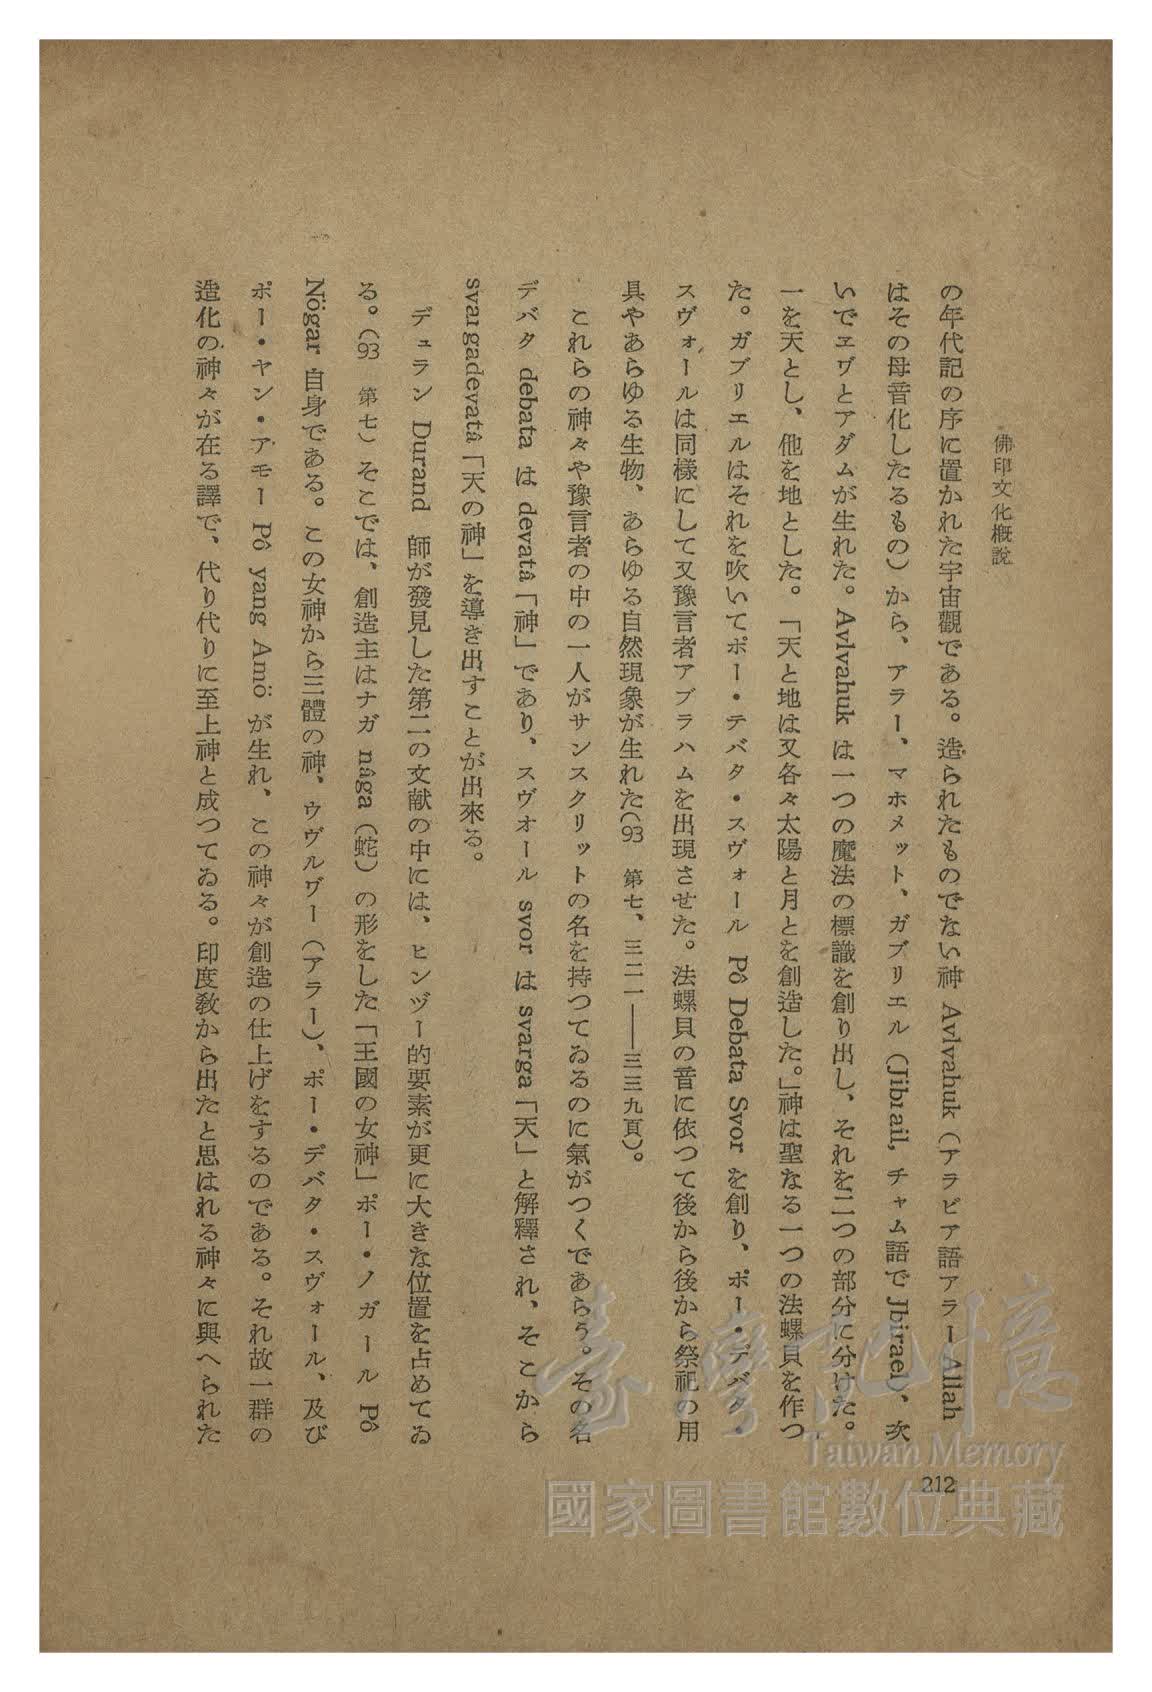 佛印文化概説
の年代記の序に置かれた宇宙觀である。造られたものでない神 Avlvahuk（アラビア語アラー Allah
はその母音化したるもの）から、アラー、マホメット、ガブリエル（Jibrail, チャム語で Jbirael）、次
いでエヴとアダムが生れた。Avlvahuk は一つの魔法の標識を創り出し、それを二つの部分に分けた。
一を天とし、他を地とした。「天と地は又各々太陽と月とを創造した。」神は聖なる一つの法螺貝を作つ
た。ガブリエルはそれを吹いてポー・テバタ・スヴォール Pô Debata Svor を創り、ポー・デバタ・
スヴォールは同樣にして又豫言者アブラハムを出現させた。法螺貝の音に依つて後から後から祭祀の用
具やあらゆる生物、あらゆる自然現象が生れた（93 第七、三二一――三三九頁）。
これらの神々や豫言者の中の一人がサンスクリットの名を持つてゐるのに氣がつくであらう。その名
デバタ debata は devatâ「神」であり、スヴオール svor は svarga「天」と解釋され、そこから
svargadevatâ「天の神」を導き出すことが出來る。
デュラン Durand 師が發見した第二の文献の中には、ヒンヅー的要素が更に大きな位置を占めてゐ
る。（93 第七）そこでは、創造主はナガ nâga（蛇）の形をした「王國の女神」ポー・ノガール Pô
Nögar 自身である。この女神から三體の神、ウヴルヴー（アラー）、ポー・デバタ・スヴォール、及び
ポー・ヤン・アモー Pô yang Amö が生れ、この神々が創造の仕上げをするのである。それ故一群の
造化の神々が在る譯で、代り代りに至上神と成つてゐる。印度教から出たと思はれる神々に興へられた
212
臺灣記憶
Taiwan Memory
國家圖書館數位典藏